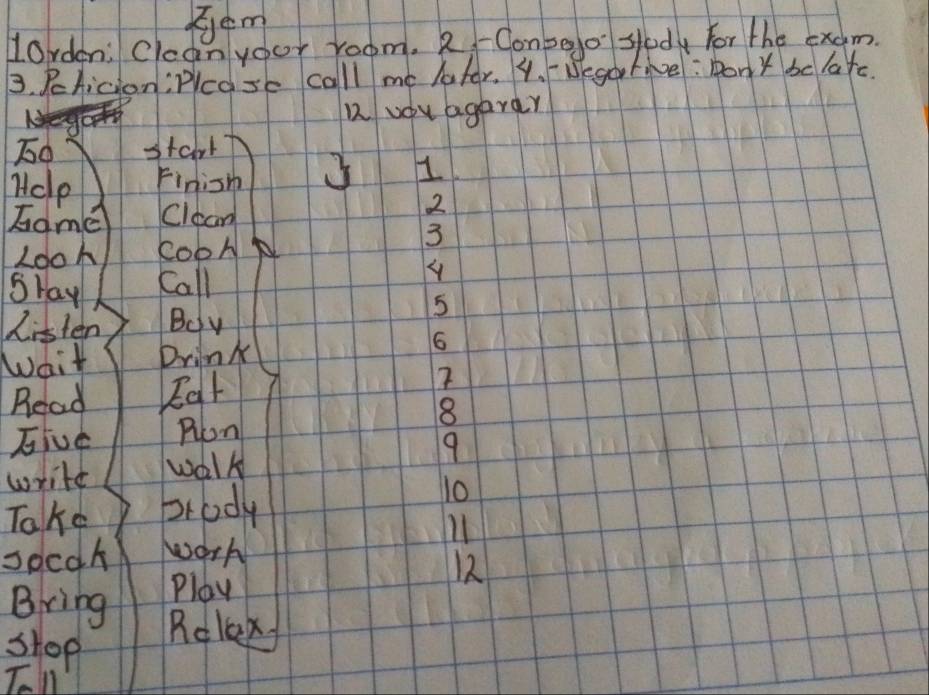 Ejem
1 Orden: Clean your room. 2.-Consejo: study for the exam.
3. Peticion: Please call me later. 4.-Negative: Don't be late.
12 vou agarar
Go
Help
Game
Look
Stay
Listen
Wait
Read
Give
Write
Take
Speak
Bring
Stop
Tell
Start
Finish
Clean
Cook
Call
Buy
Drink
Eat
Run
Walk
Study
Work
Play
Relax
1
2
3
4
5
6
7
8
9
10
11
12